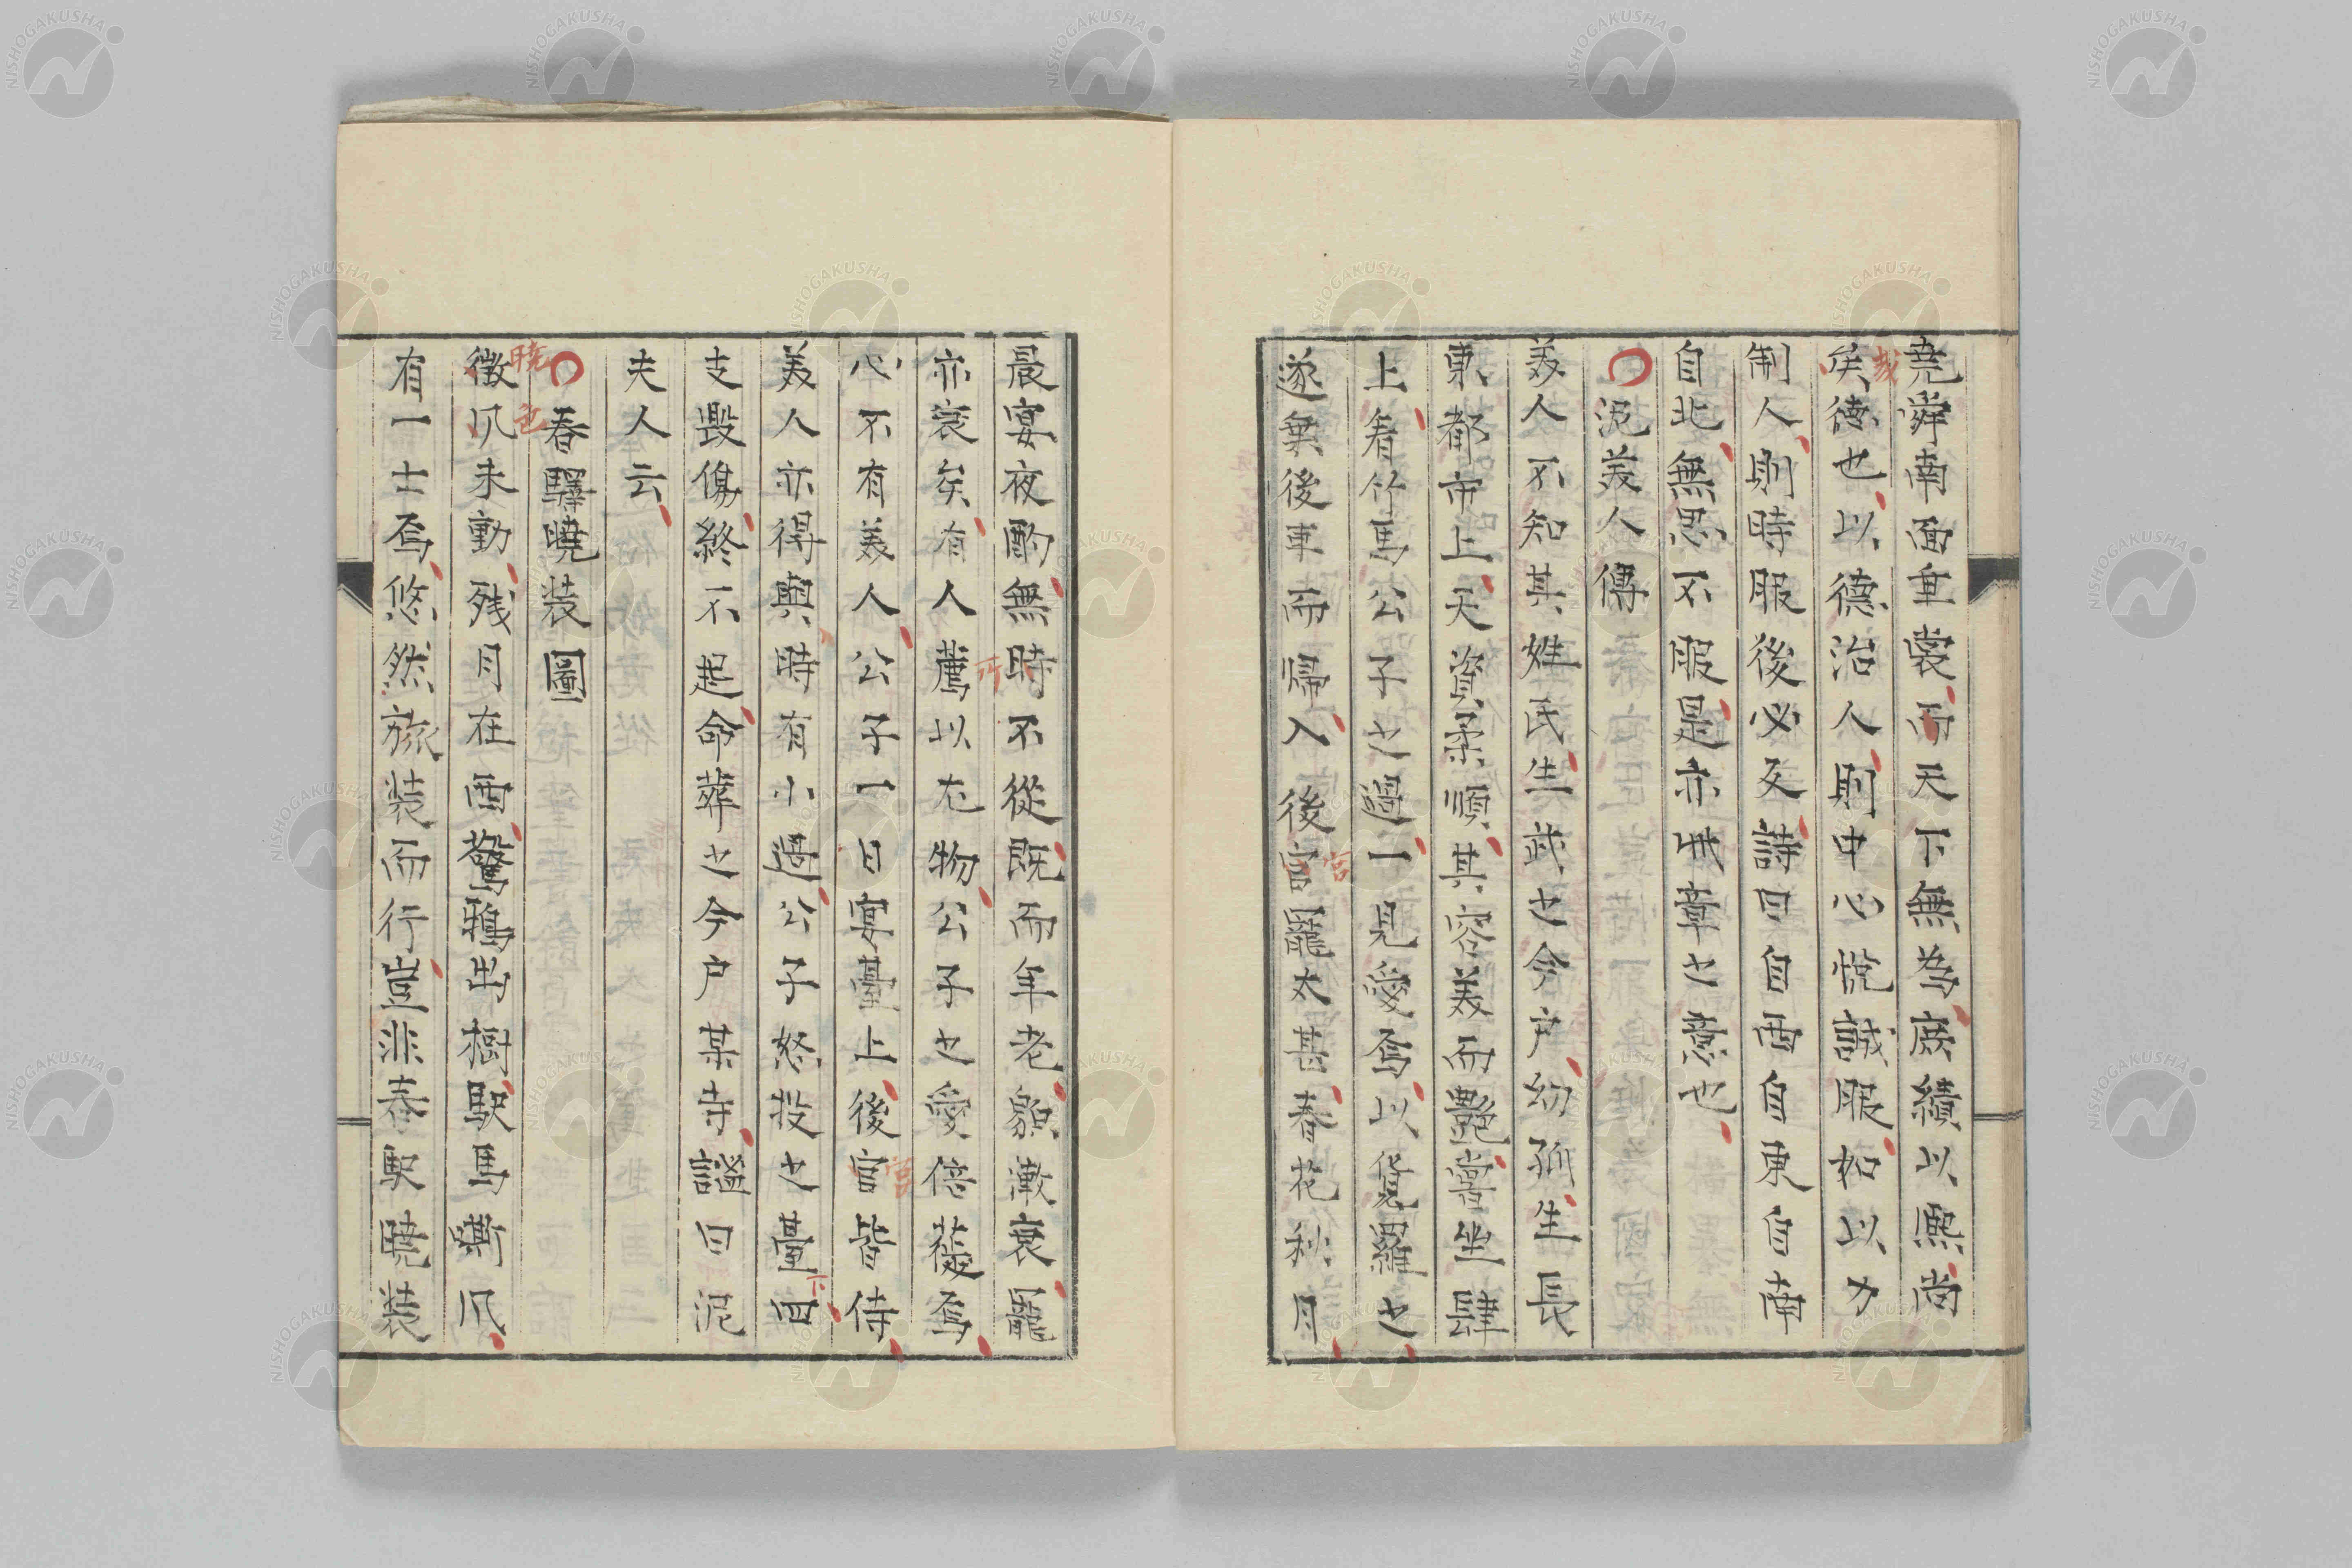 堯舜南面垂裳而天下無為庶績以熈尚
矣徳也以徳治人則中心悦誠服如以力
制人則時服後必叉詩曰自西自東自南
自北無思不服是亦此章之意也
泥美人傳
美人不知其姓氏生武之今戸幼孤生長
東都市上天資柔順其容美而艶嘗坐肆
上着竹馬公子之過一見愛焉以貨羅之
遂無後車而歸入後官寵太甚春花秋月
晨宴夜酌無時不從既而年老貌漸衰寵
亦衰矣有人薦以尤物公子之愛倍蓰焉
心不有美人公子一日宴臺上後官皆侍
美人亦得與時有小過公子怒投之臺四
支毀傷終不起命葬之今戸某寺謚曰泥
夫人云
春驛曉装圖
微风未動残月在西驚鴉出樹駅馬嘶风
有一士焉悠然旅装而行豈非春駅曉装
哉
宮
所
宮
下
曉色
NISHOGAKUSHA